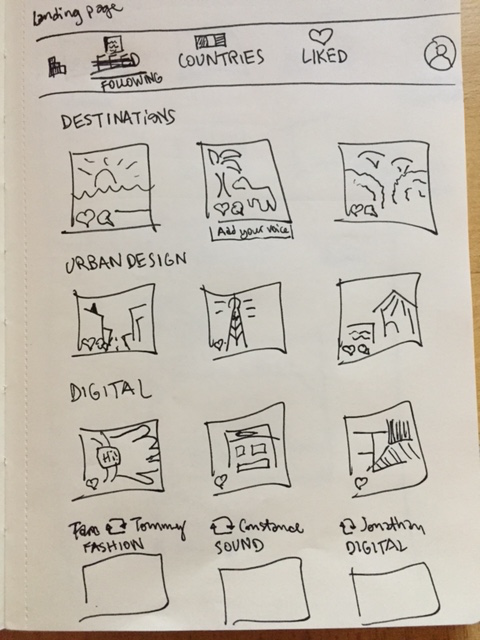 Landing page
FEED
FOLLOWING
COUNTRIES
LIKED
DESTINATIONS
Add your voice
URBAN DESIGN
DIGITAL
Hi!
Tommy
FASHION
Constance
SOUND
Jonathan
DIGITAL